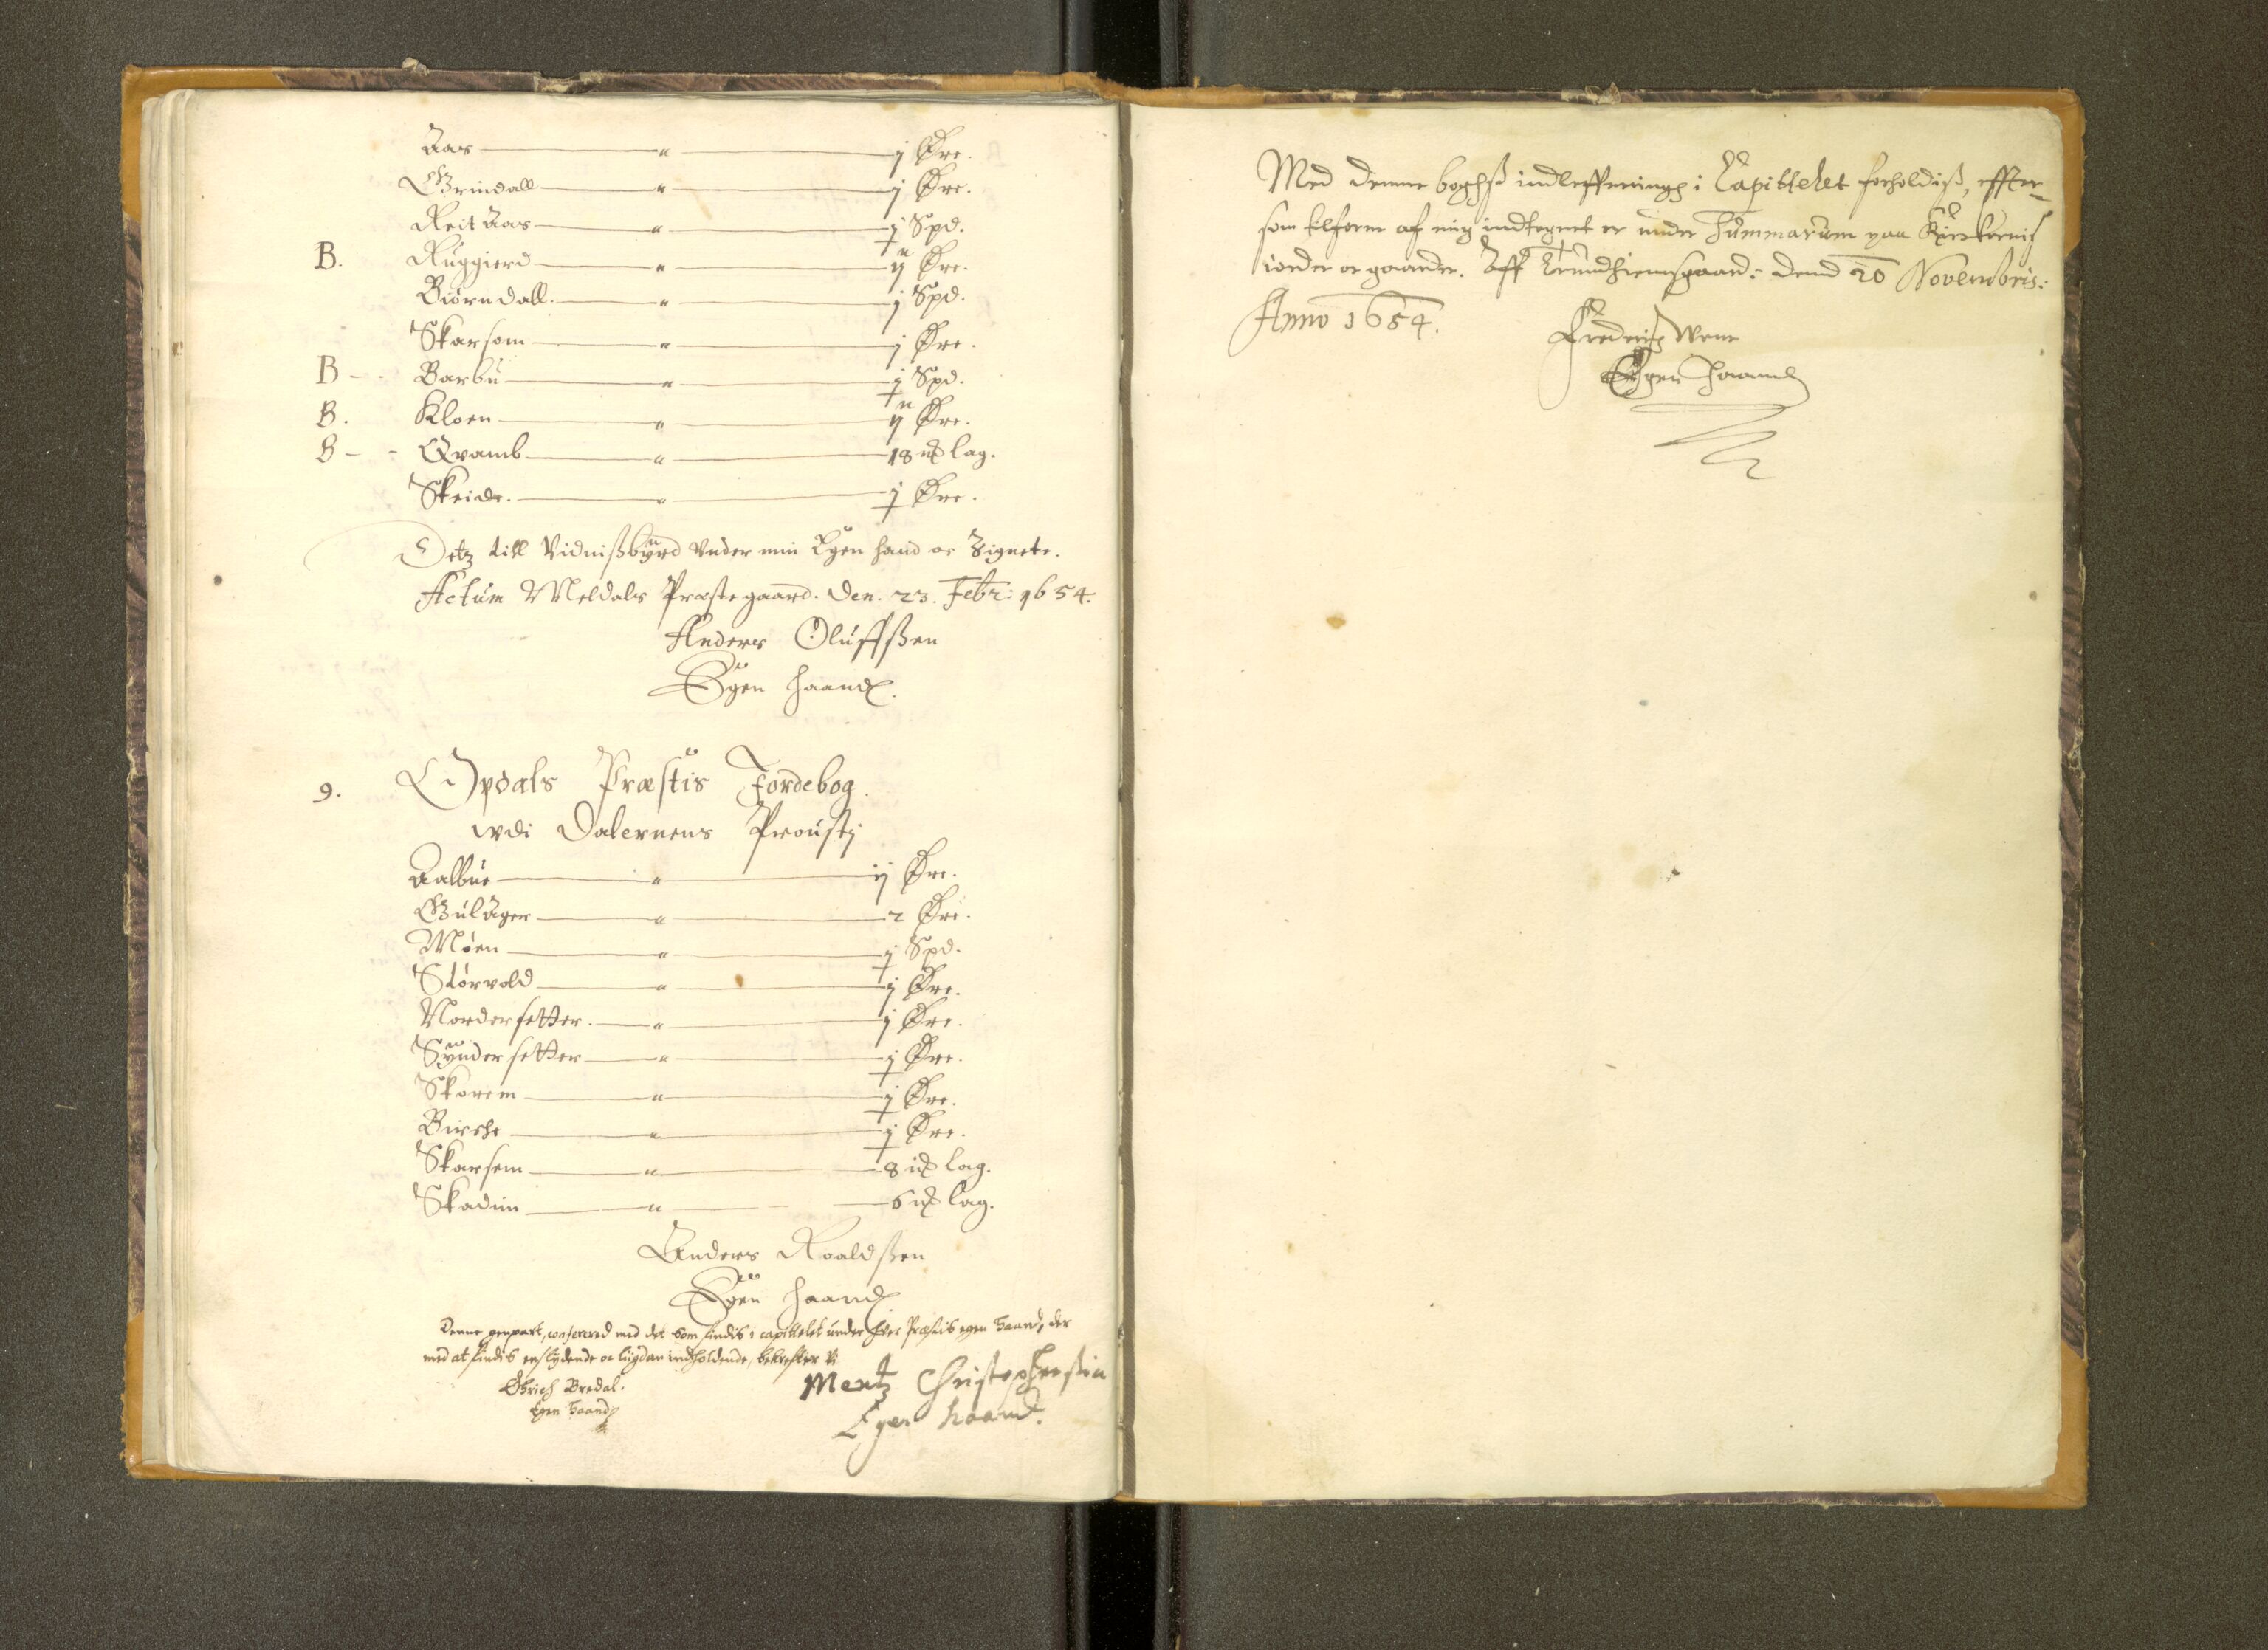 Aas — " — j Øre.
Grindall — " — j Øre.
Reit Aas — " — j Spd.
B. Ruggierd — " — ij Øre.
Biørndall. — " — j Spd.
Skarsom — " — j Øre.
B - - Barbu — " — j Spd.
B. Kloen — " — ij Øre.
B - - Qvamb — " — 18 lag.
Skeide. — " — j Øre.
Detz till Vidnißbyrd under min Egen hand oc Zignete.
Actum Meldals Præstegaard. Den. 23. Febr: 1654.
Anders Oluffßen
Egen haand.
9. Opdals Præstis Jordebog.
udi Dalernens Proustj
Aalbue — " — ij Øre.
Gulager — " — 2 Øre.
Moen — " — j Spd.
Størvold — " — j Øre.
Nordersetter. — " — j Øre.
Syndersetter — " — j Øre.
Skorem — " — j Øre.
Birche — " — j Øre.
Skarsem — " — 8 lag.
Skadim — " — 6 lag.
Anders Roaldßen
Egen haand
Denne genpart, conferered med det som findis i capittelet under hver Præstis egen haand, der
med at findis enslydende oc liigdan indholdende, bekrefter vi
Christopherßen
Bredal. Mentz
Egen haand
Egen haand.
Med denne bogß indlefferingh i Capittelet forholdiß, effter-
som tilforne af mig indtegnet er under Summarum paa Kirkernis
iorder oc gaarder. Aff Trundhiemsgaard. dend 20 Novembris:
Anno 1654.
Fredrich
Egen haand